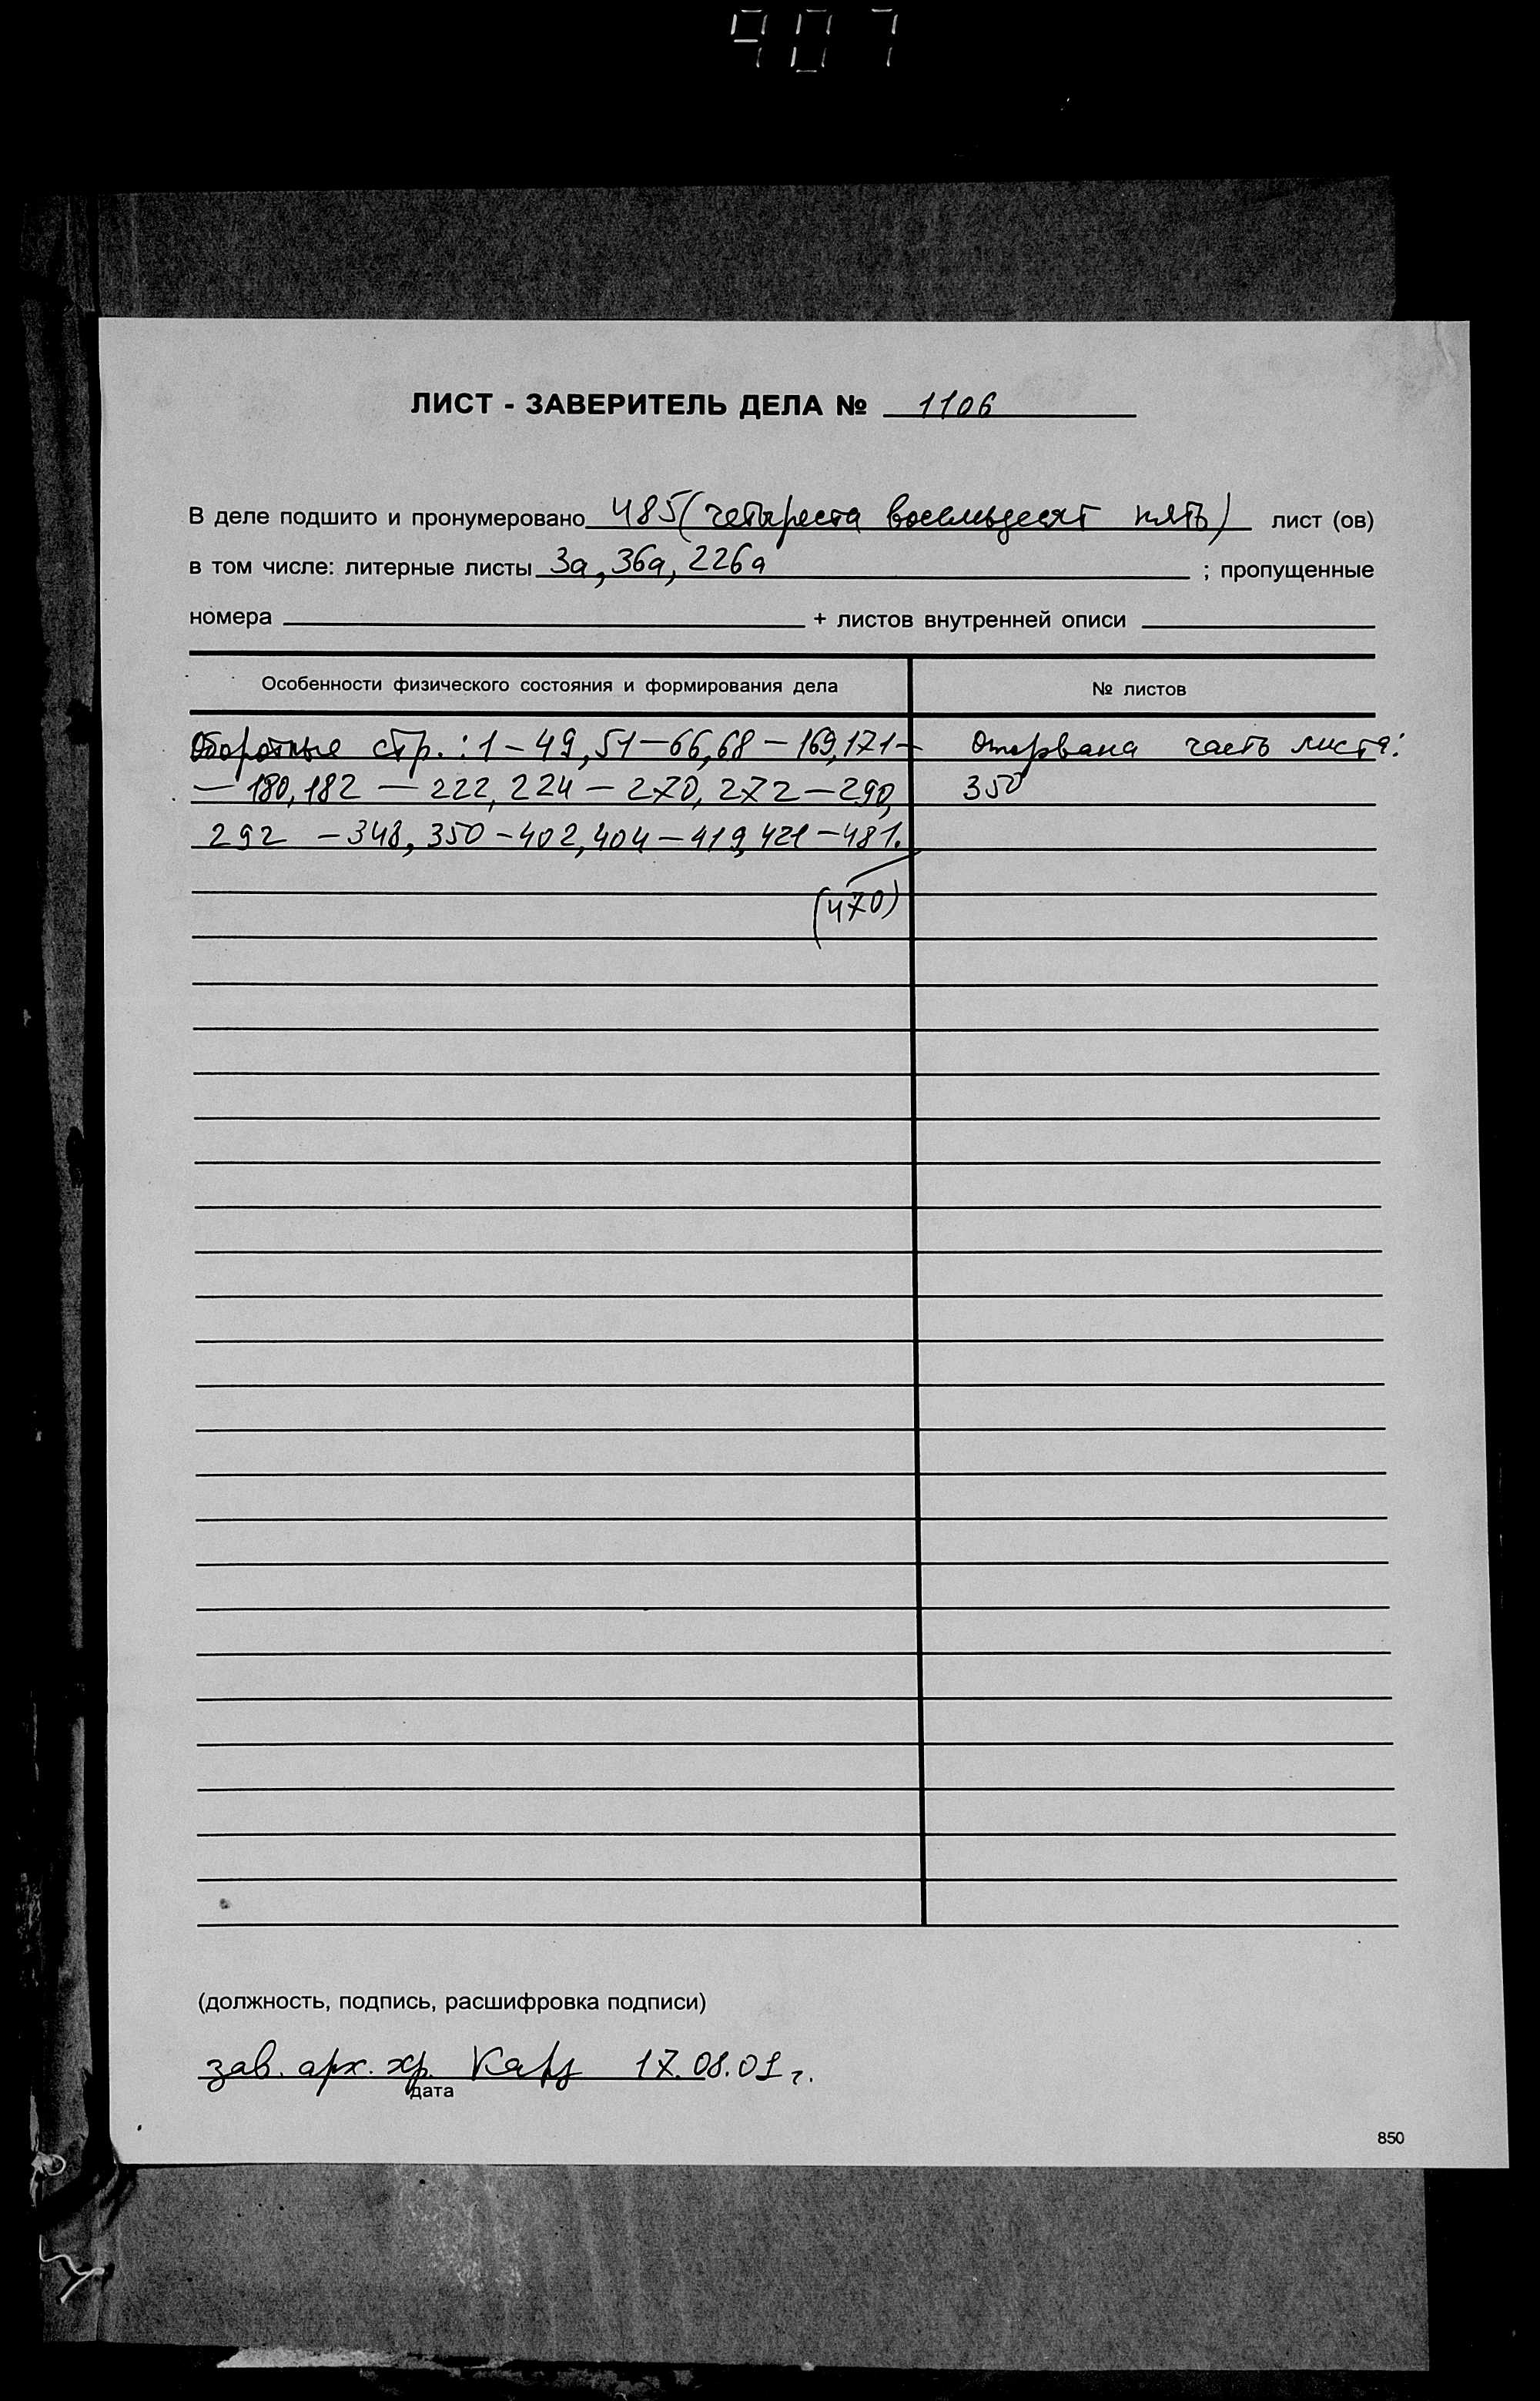 907
ЛИСТ - ЗАВЕРИТЕЛЬ ДЕЛА № 1106
В деле подшито и пронумеровано 485 (четыреста восемьдесят пять) лист (ов)
в том числе: литерные листы 3а, 36а, 226а ; пропущенные
номера + листов внутренней описи
Особенности физического состояния и формирования дела № листов
Оборотные стр.: 1 – 49, 51 – 66, 68 – 169, 171 – Оторвана часть листа:
– 180, 182 – 222, 224 – 270, 272 – 290, 350
292 – 348, 350 – 402, 404 – 419, 421 – 481.
(470)
(должность, подпись, расшифровка подписи)
зав. арх. хр. 17.08.01 г.
дата
850